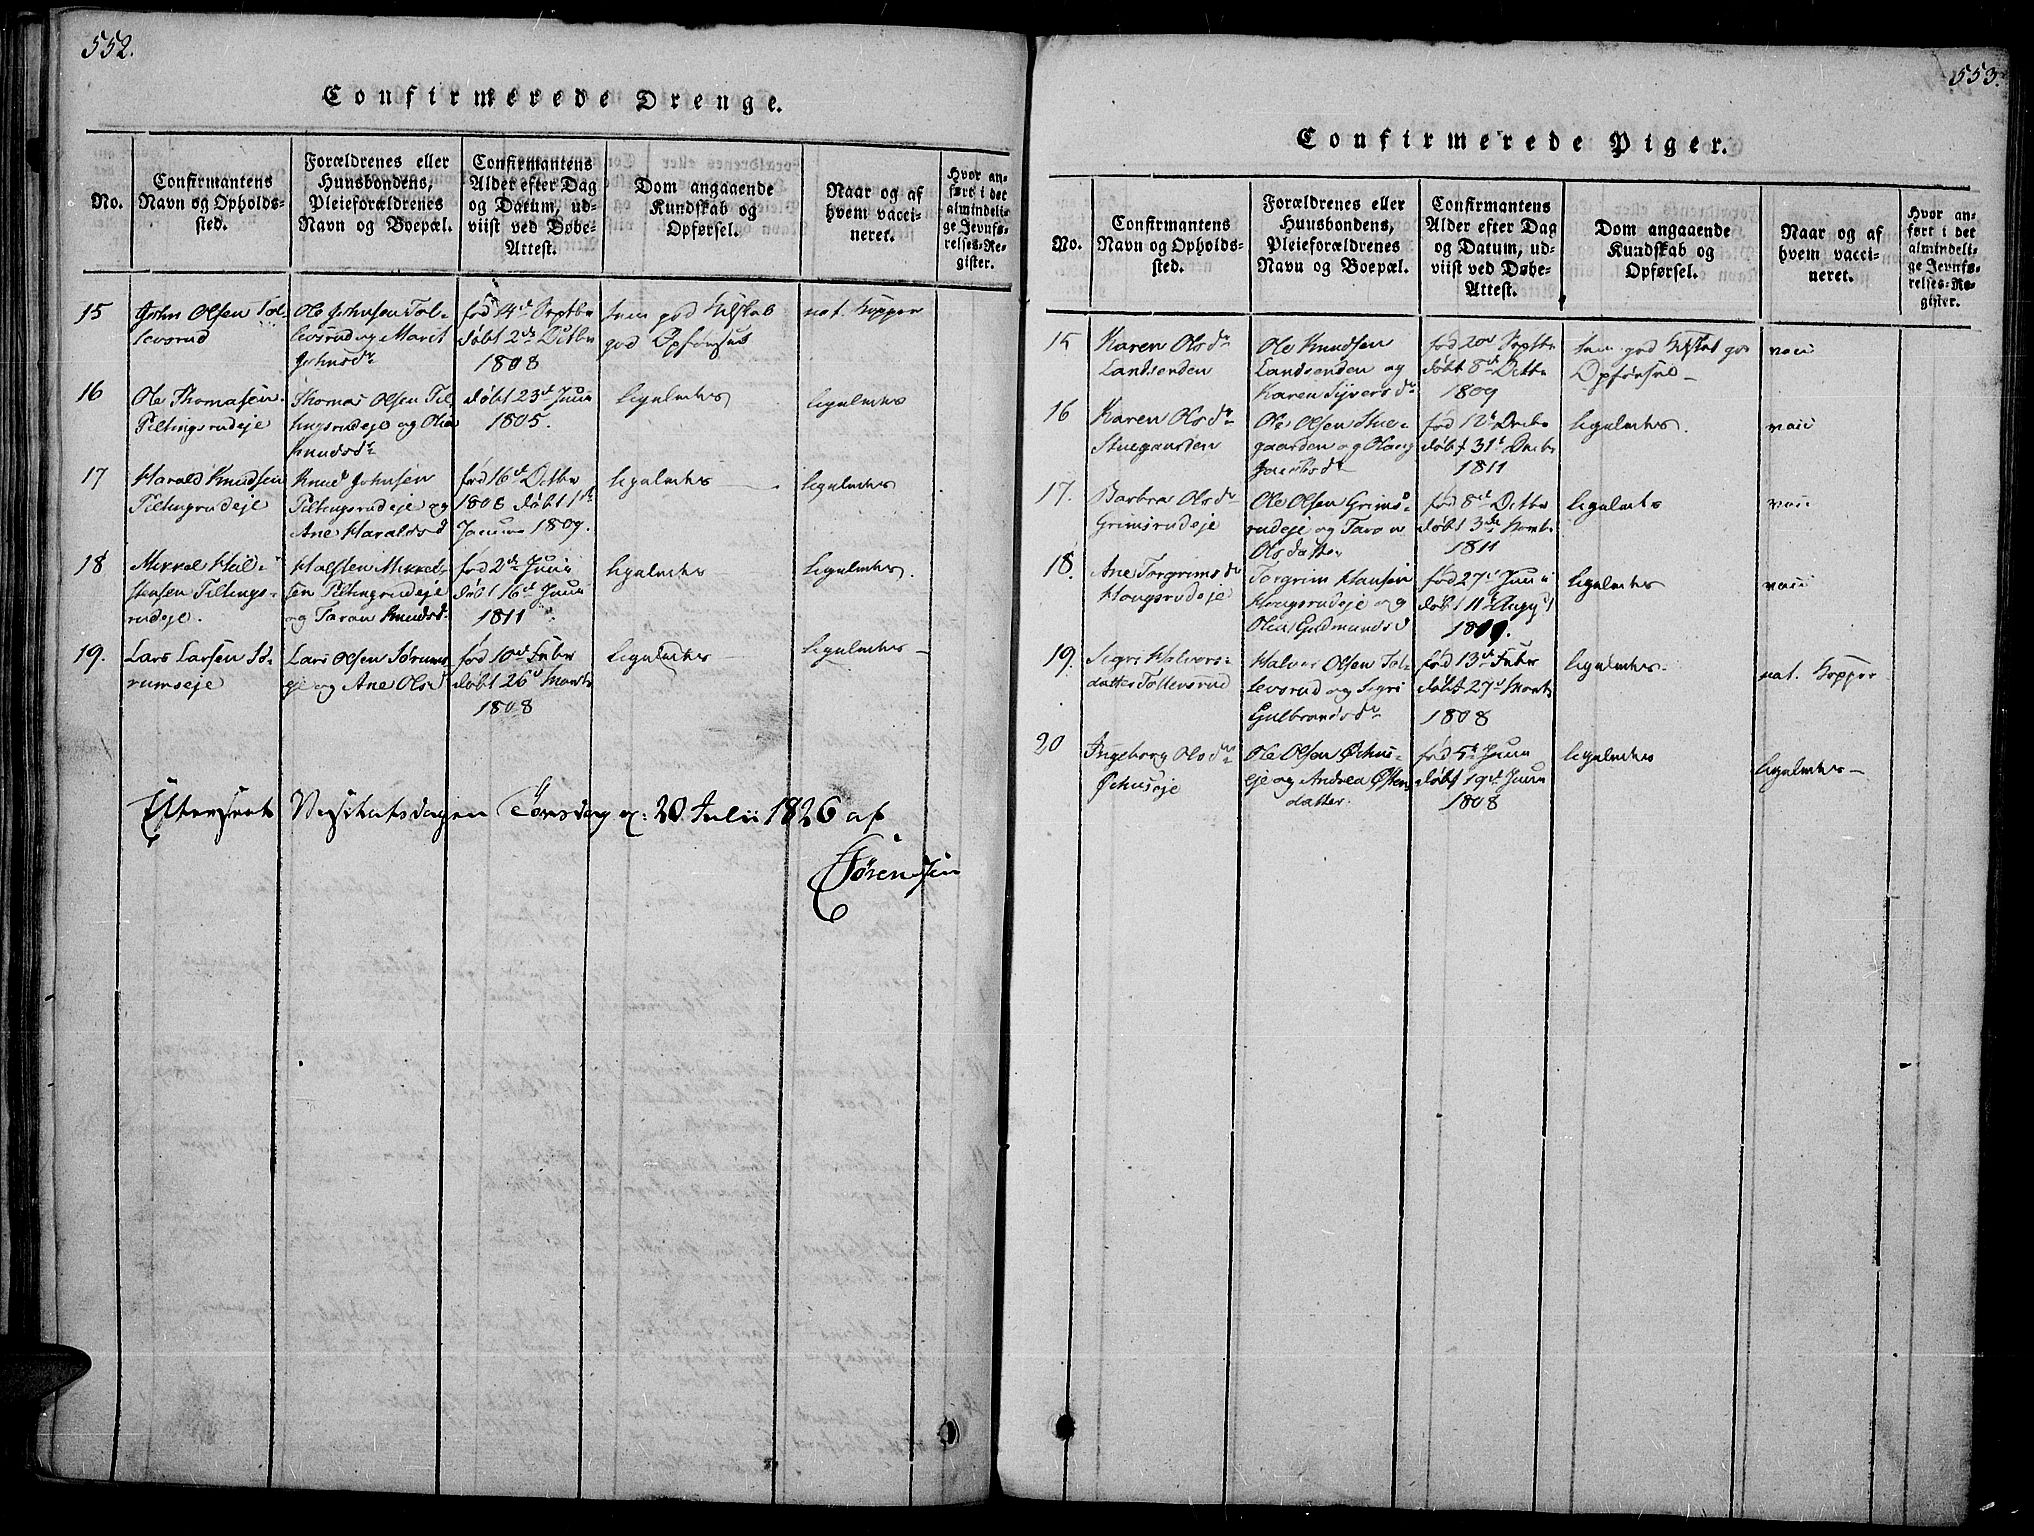 552.
Confirmerede Drenge.
No.
Confirmantens
Navn og Opholds-
sted.
Forældrenes eller
Huusbondens,
Pleieforældrenes
Navn og Boepæl.
Confirmantens
Alder efter Dag
og Datum, ud-
viist ved Døbe-
Attest.
Dom angaaende
Kundskab og
Opførsel.
Naar og af
hvem vacci-
neret.
Hvor an-
ført i det
almindeli-
ge Jevnfø-
relses-Re-
gister.
15
John Olsen Tol-
levsrud
Ole Johnsen Tol-
levsrud og Marit
Johnsdr
født 4de Septbr
døbt 2de Octbr
1808
god
god Opførsel
nat. Kopper
16
Ole Thomasen
Tiltingsrudeje
Thomas Olsen Til-
tingsrudeje og Olia
Knudsdr
døbt 23de Juni
1805.
ligeledes
ligeledes
17
Harald Knudsen
Tiltingrudeje
Knud Johnsen
Tiltingsrudeje og
Ane Haraldsd
fød 16de Octbr
1808 døbt 1de
Januar 1809.
ligeledes
ligeledes
18
Mikkel Hal-
stensen Tiltings-
rudeje.
Halsten Mikkel-
sen Tiltingrudeje
og Taran Knudsd.
fød 2de Juni
døbt 16de Juni
1811
ligeledes
ligeledes.
19.
Lars Larsen Sø-
rumseje
Lars Olsen Sørums-
eje og Ane Olsd
fød 10de Febr
døbt 26d Marts
1808
ligeledes
ligeledes
20 Julii 1826 af
Sørensen
553.
Confirmerede Piger.
No.
Confirmantens
Navn og Opholds-
sted.
Forældrenes eller
Huusbondens,
Pleieforældrenes
Navn og Boepæl.
Confirmantens
Alder efter Dag
og Datum, ud-
viist ved Døbe-
Attest.
Dom angaaende
Kundskab og
Opførsel.
Naar og af
hvem vacci-
neret.
Hvor an-
ført i det
almindeli-
ge Jevnfø-
relses-Re-
gister.
15
Karen Olsdr
Landsenden
Ole Knudsen
Landsenden og
Karen Syversdr
fød 20de Septbr
døbt 8de Octbr
1809
god
Opførsel
vacc
16
Karen Olsdr
Stuegaarden
Ole Olsen Stue-
gaarden og
Jacobsdr
fød 12te Decbr
døbt 31te Decbr
1811
ligeledes.
vacc
17.
Barbra Olsdr
Grimsrudeje
Ole Olsen Grims-
rudeje og Taron
Olsdatter
fød 8de Octbr
døbt 3de Novbr
1811
ligeledes
vacc
18.
Ane Torgrimsdr
Hougsrudeje
Torgrim Hansen
Hougsrudeje og
Olia Gudmundsd
fød 27de Juni
døbt 11te Augst
1809.
ligeledes
vacc
19.
Sigri Halvors-
datter Tollevsrud
Halvor Olsen Tol-
levsrud og Sigri
Gulbrandsdr
fød 13de Febr
døbt 27de Marts
1808
ligeledes.
nat. Kopper
20
Ingeborg Olsdr
Økuseje
Ole Olsen Økus-
eje og Andrea Østens
datter.
fød 5te Juni
døbt 19de Juni
1808
ligeledes
ligeledes